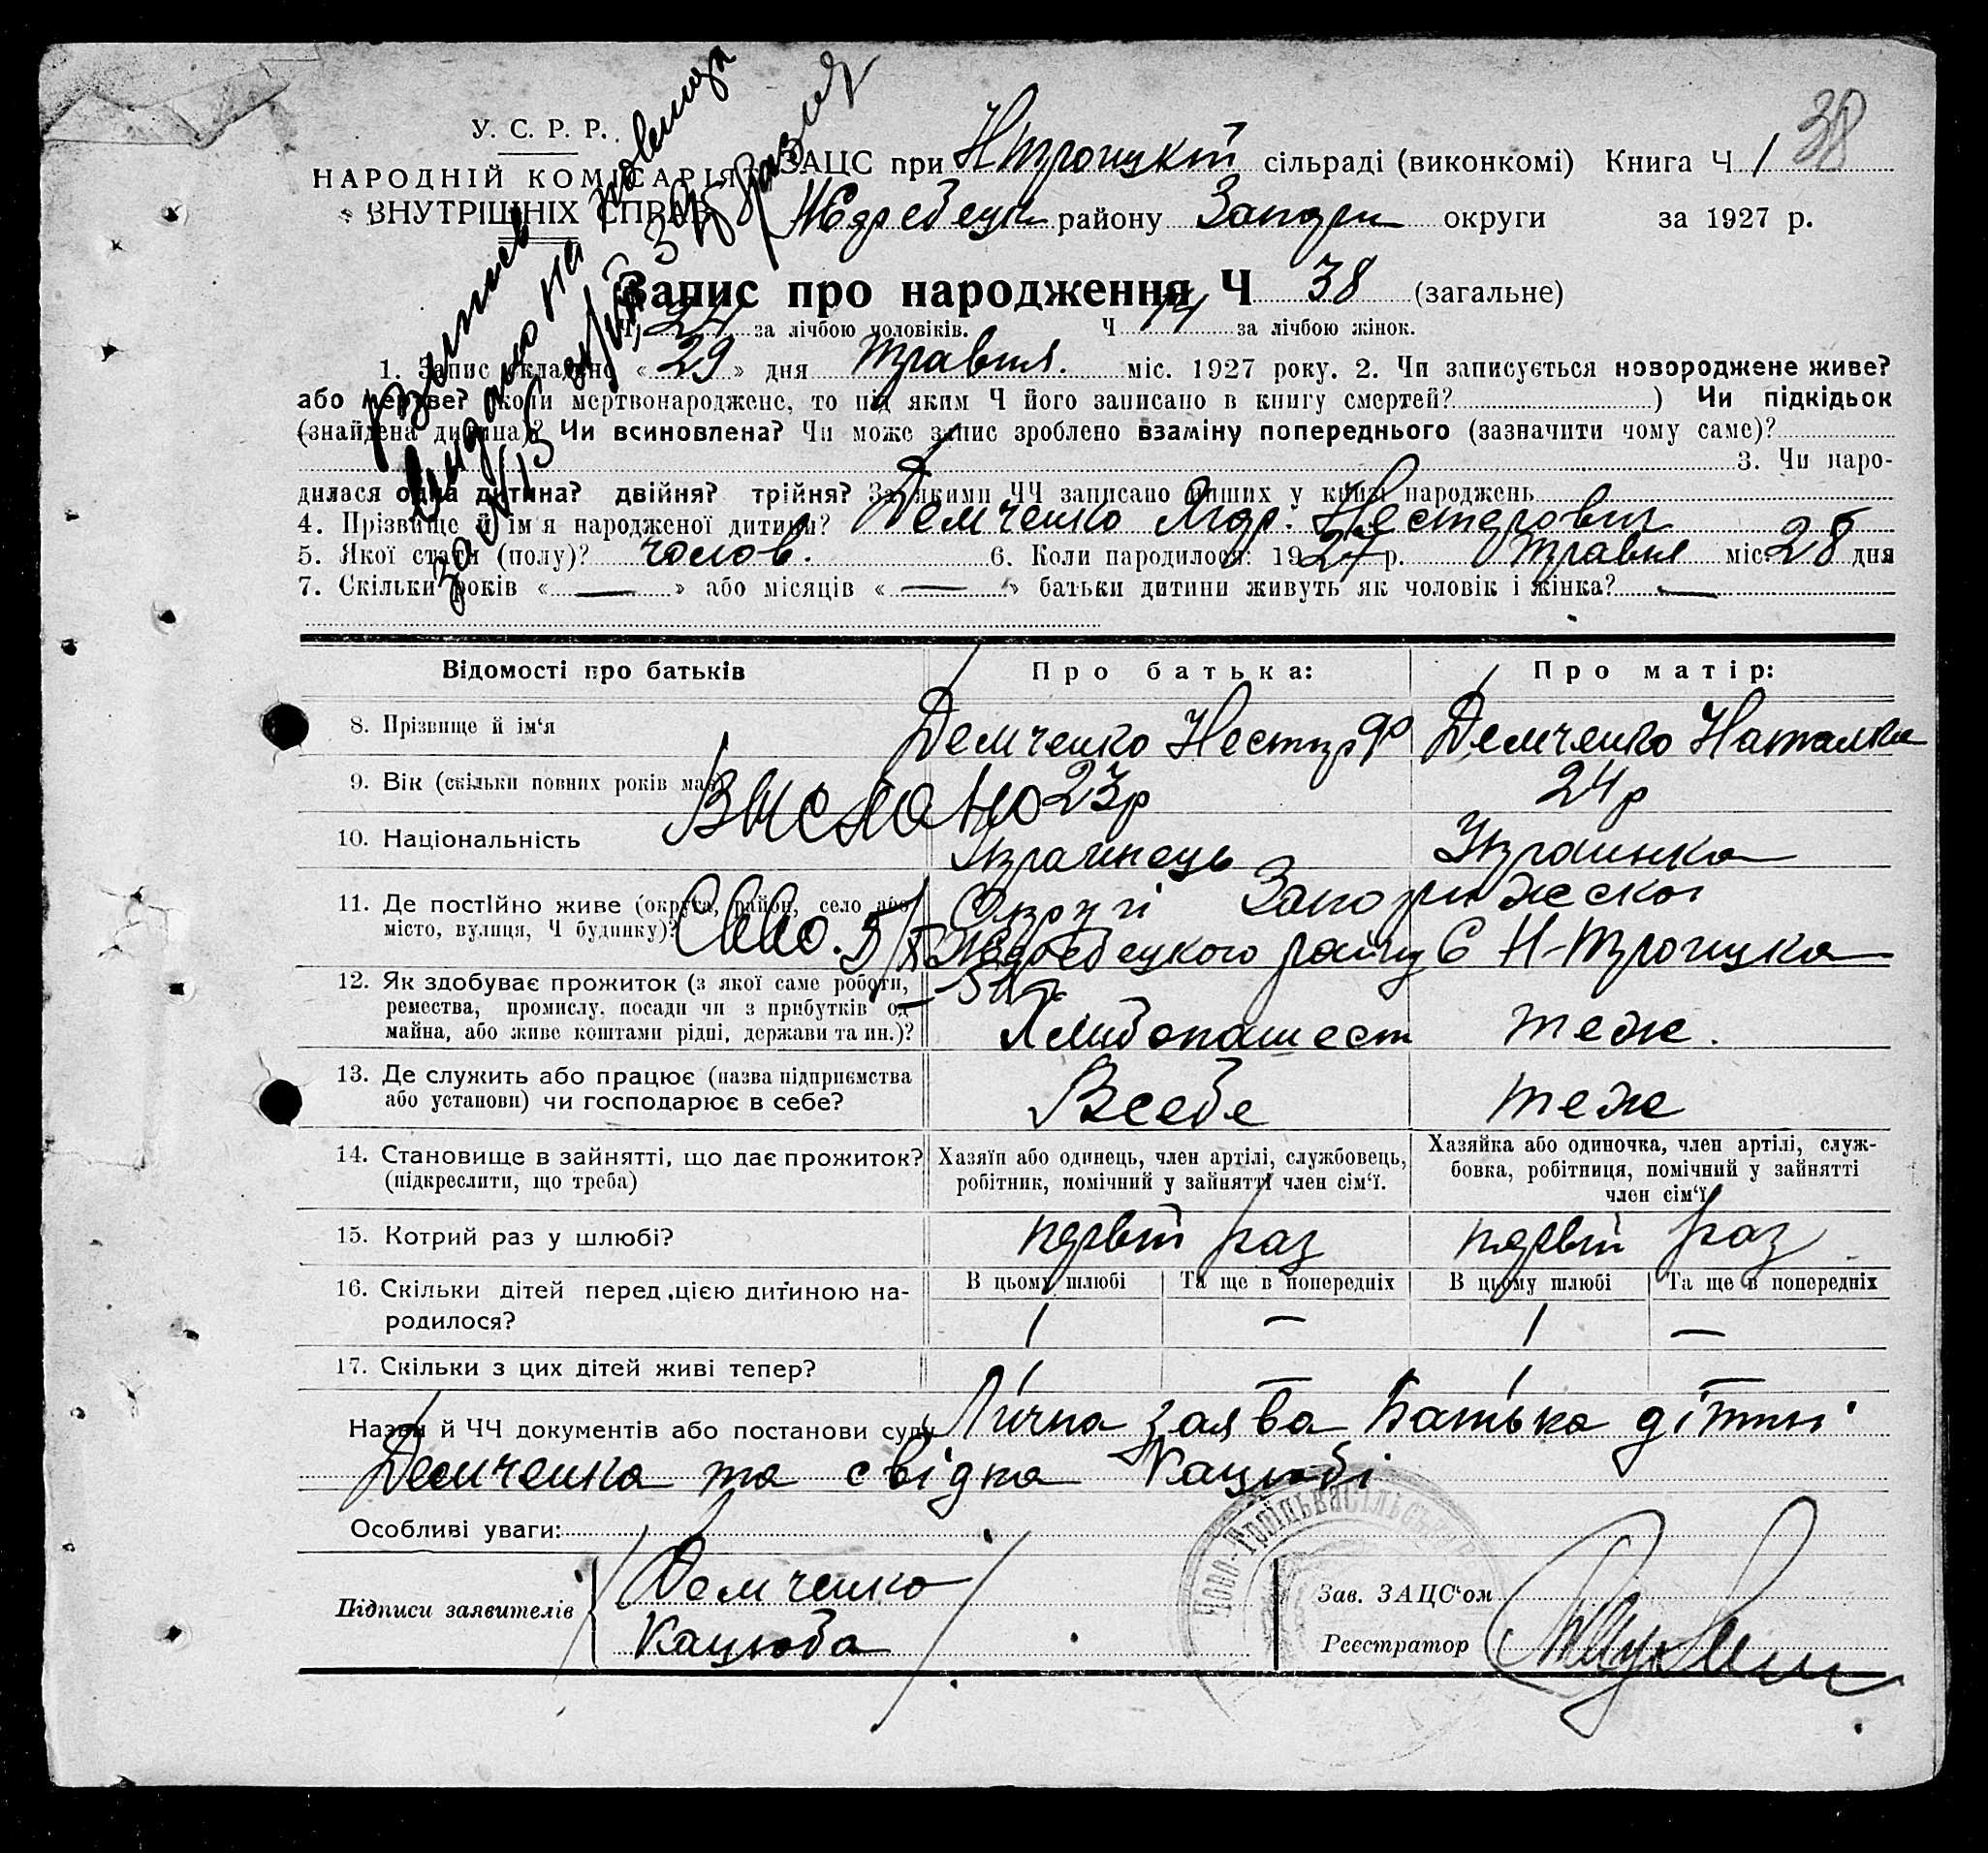 38
У. С. Р. Р.
НАРОДНІЙ КОМІСАРІЯТ
ВНУТРІШНІХ СПРАВ
ЗАЦС при НТроицкій сільраді (виконкомі) Книга Ч 1
району Запори округи за 1927 р.
Запис про народження Ч 38 (загальне)
Ч 24 за лічбою чоловіків. Ч 14 за лічбою жінок.
1. Запис складено « 29 » дня травня. міс. 1927 року. 2. Чи записується новороджене живе?
або мертве? (коли мертвонароджене, то під яким Ч його записано в книгу смертей?) Чи підкідьок
(знайдена дитина)? Чи всиновлена? Чи може запис зроблено взаміну попереднього (зазначити чому саме)?
3. Чи наро-
дилася одна дитина? двійня? трійня? За якими ЧЧ записано инших у книзі народжень
4. Прізвище й ім'я народженої дитини? Демченко Нестерович
5. Якої стати (полу)? чолов. 6. Коли народилося: 1927 р. травня міс. 28 дня
7. Скільки років « — » або місяців « — » батьки дитини живуть як чоловік і жінка? —
Відомості про батьків Про батька: Про матір:
8. Прізвище й ім‘я Демченко Нестір Демченко Наталка
9. Вік (скільки повних років має) 23р 24р
Выслано
10. Національність Украинець Украинка
11. Де постійно живе (округа, район, село або
місто, вулиця, Ч будинку)?
Округі Запорижеской
району С Н-Троицка
12. Як здобуває прожиток (з якої саме роботи,
ремества, промислу, посади чи з прибутків од
майна, або живе коштами рідні, держави та ин.)?
Хлибопашест теж.
13. Де служить або працює (назва підприємства
або установи) чи господарює в себе?
Всебе теж
14. Становище в зайнятті, що дає прожиток?
(підкреслити, що треба)
Хазяїн або одинець, член артілі, службовець,
робітник, помічний у зайнятті член сім‘ї.
Хазяйка або одиночка, член артілі, служ-
бовка, робітниця, помічний у зайнятті
член сім‘ї
15. Котрий раз у шлюбі? первій раз первій раз
16. Скільки дітей перед цією дитиною на-
родилося?
В цьому шлюбі Та ще в попередніх В цьому шлюбі Та ще в попередніх
1 — 1 —
17. Скільки з цих дітей живі тепер? 1 — 1 —
Назви й ЧЧ документів або постанови суду Лична заява батька дітині
Демченка та свідка Кацюбі
Особливі уваги:
Підписи заявителів Демченко
Кацюба
Зав. ЗАЦС‘ом
Реєстратор